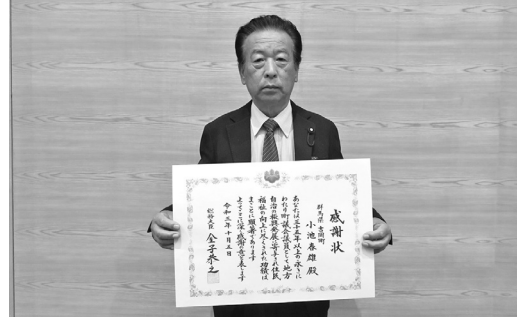 感謝状
群馬県 吉岡町
小池春雄殿
あなたは三十五年以上の永きに
わたり町議会議員として地方
自治の振興発展に寄与され住民
福祉の向上に尽くされた功績は
まことに顕著であります
よってここに深く感謝の意を表します
令和三年十月五日
総務大臣 金子恭之